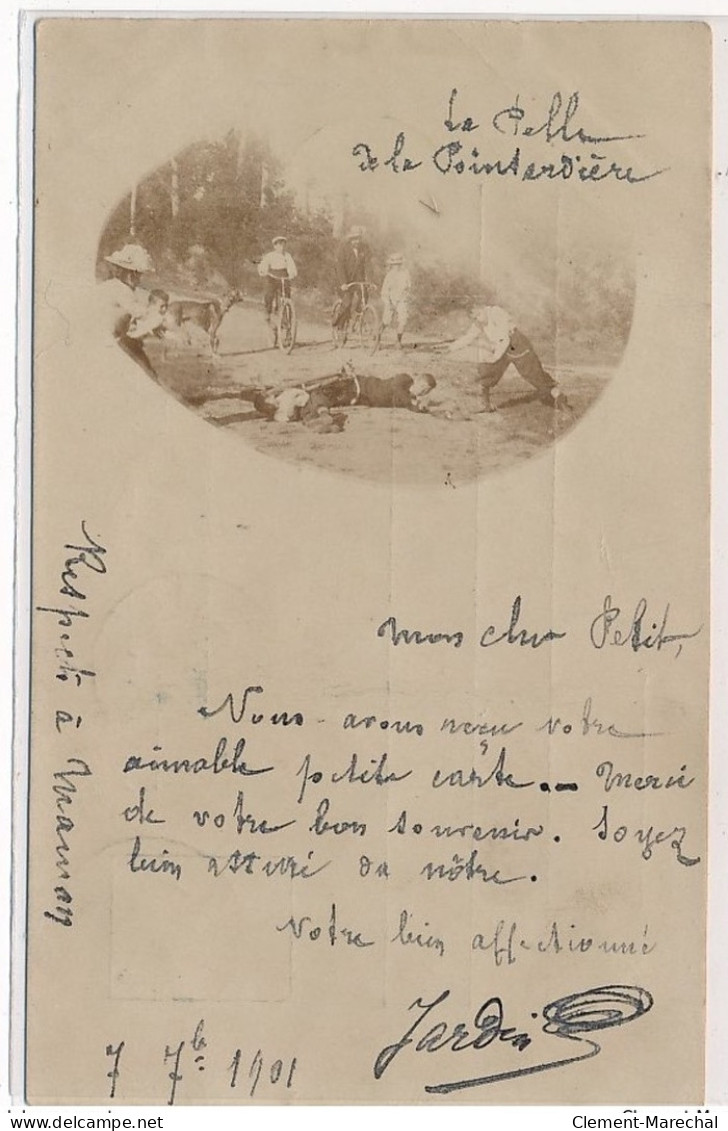 La Pelle
de la Pointerdière
Mon cher Petit,
Nous avons reçu votre
aimable petite carte. — Merci
de votre bon souvenir. Soyez
bien assuré du nôtre.
Votre bien affectionné
Jardin
7 7b 1901
Respects à Maman
Clement-Marechal